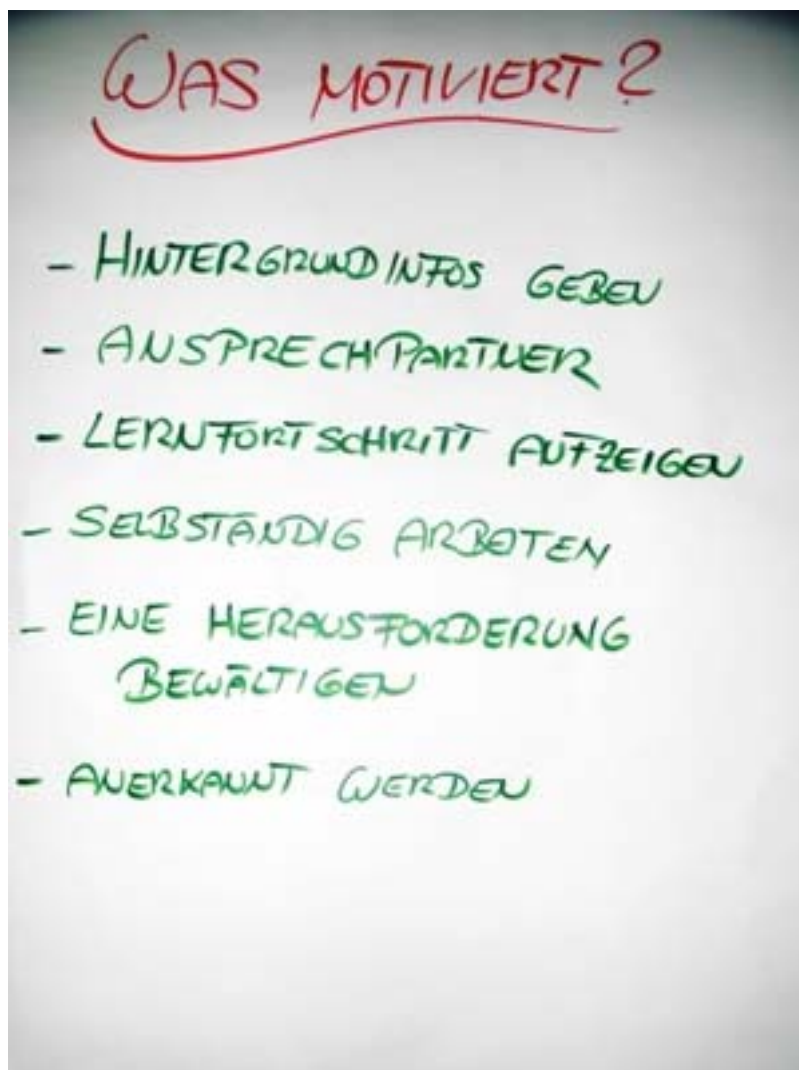 WAS MOTIVIERT?
- HINTERGRUNDINFOS GEBEN
- ANSPRECHPARTNER
- LERNFORTSCHRITT AUFZEIGEN
- SELBSTÄNDIG ARBEITEN
- EINE HERAUSFORDERUNG
BEWÄLTIGEN
- ANERKANNT WERDEN